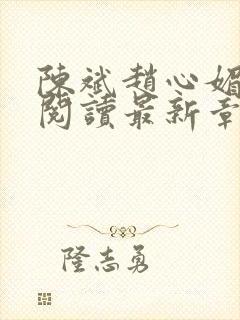 陳斌趙心媚
閱讀最新章
隆志勇